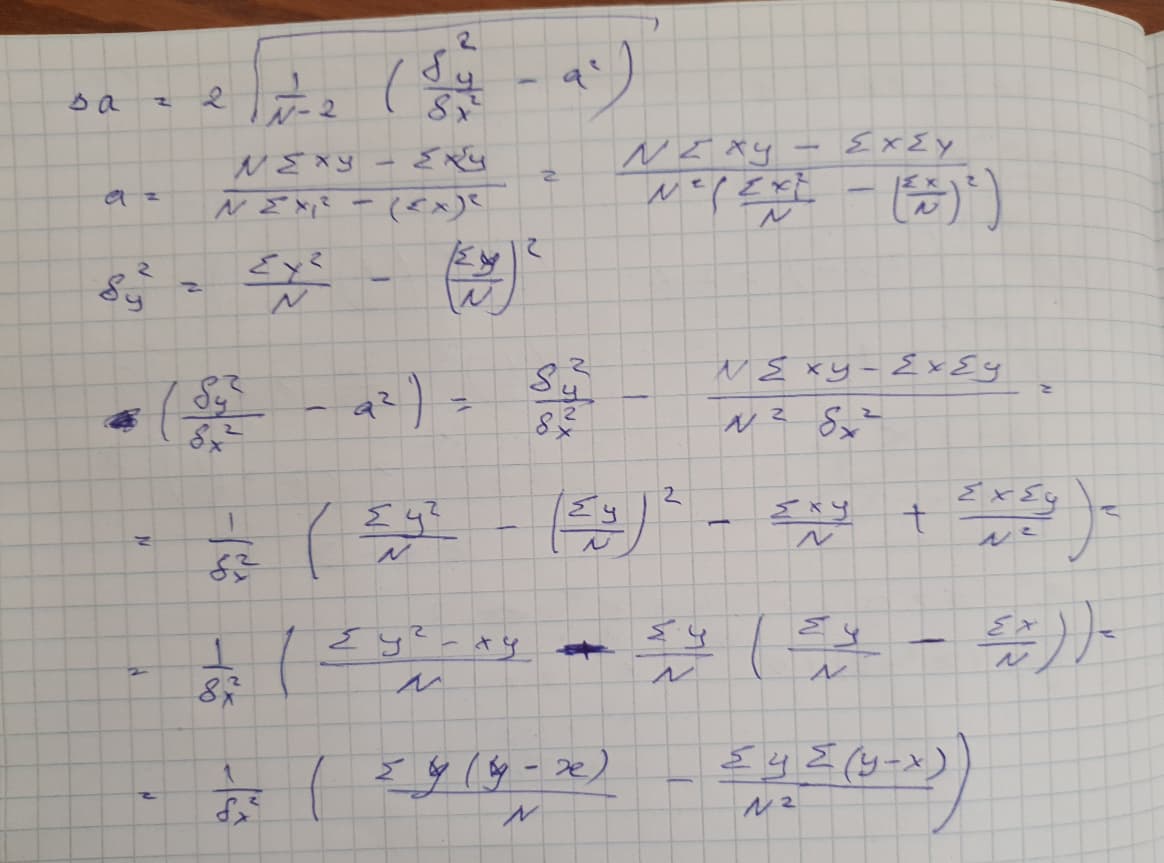 Δa = 2 √(1/(N-2) (δy²/δx² - a²))
a = (NΣxy - ΣxΣy)/(NΣx₁² - (Σx)²) = (NΣxy - ΣxΣy)/(N²(Σx₁²/N - (Σx/N)²))
δy² = Σy²/N - (Σy/N)²
(δy²/δx² - a²) = δy²/δx² - (NΣxy - ΣxΣy)/(N² δx²) =
= 1/δx² (Σy²/N - (Σy/N)² - Σxy/N + ΣxΣy/N²) =
= 1/δx² ((Σy² - xy)/N - Σy/N (Σy/N - Σx/N)) =
= 1/δx² (Σy(y - x)/N - ΣyΣ(y-x)/N²)